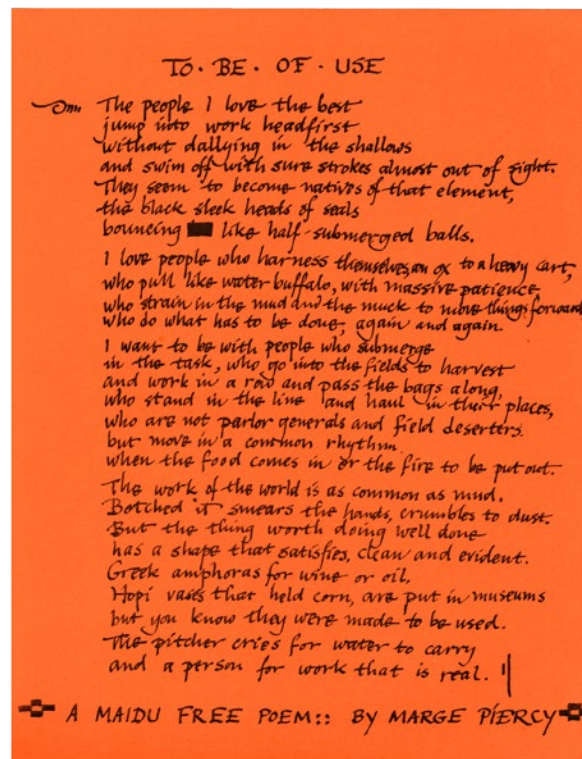 TO · BE · OF · USE
The people I love the best
jump into work headfirst
without dallying in the shallows
and swim off with sure strokes almost out of sight.
They seem to become natives of that element,
the black sleek heads of seals
bouncing like half-submerged balls.
I love people who harness themselves, an ox to a heavy cart,
who pull like water buffalo, with massive patience
who strain in the mud and the muck to move things forward
who do what has to be done, again and again.
I want to be with people who submerge
in the task, who go into the fields to harvest
and work in a row and pass the bags along,
who stand in the line and haul in their places,
who are not parlor generals and field deserters.
but move in a common rhythm
when the food comes in or the fire to be put out.
The work of the world is as common as mud.
Botched it smears the hands, crumbles to dust.
But the thing worth doing well done
has a shape that satisfies, clean and evident.
Greek amphoras for wine or oil,
Hopi vases that held corn, are put in museums
but you know they were made to be used.
The pitcher cries for water to carry
and a person for work that is real.
A MAIDU FREE POEM:: BY MARGE PIERCY